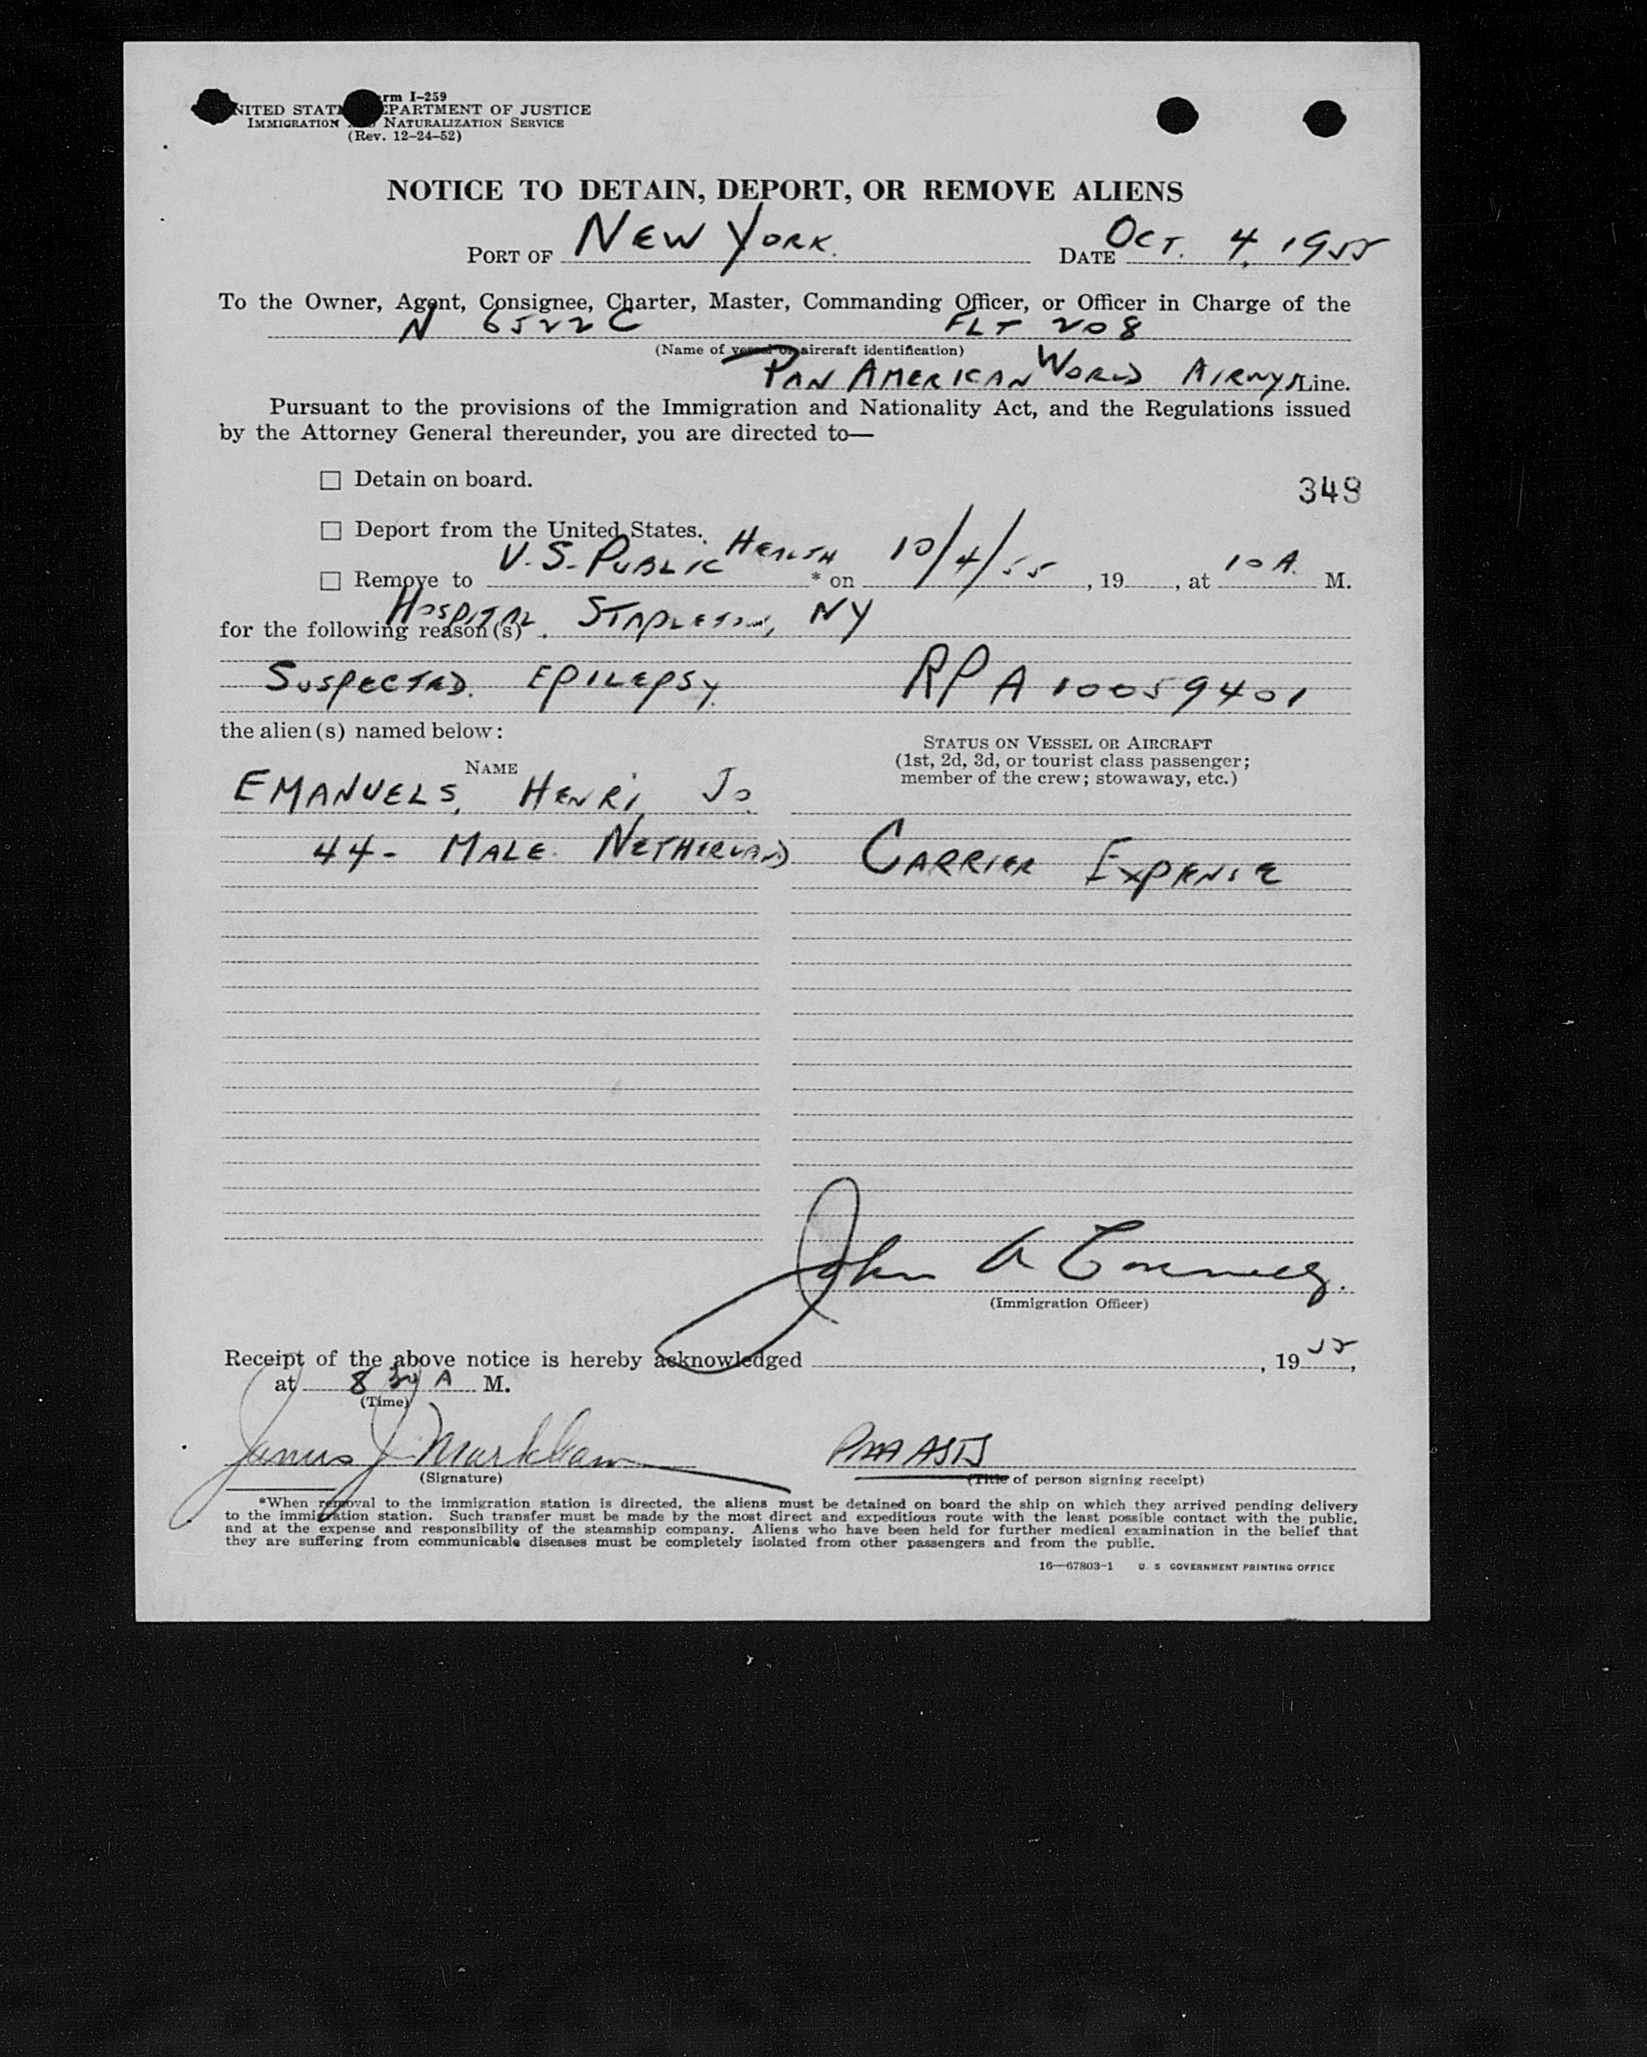 rm I-259
NITED STAT EPARTMENT OF JUSTICE
IMMIGRATION NATURALIZATION SERVICE
(Rev. 12-24-52)
NOTICE TO DETAIN, DEPORT, OR REMOVE ALIENS
PORT OF NEW YORK. DATE OCT. 4, 1955
To the Owner, Agent, Consignee, Charter, Master, Commanding Officer, or Officer in Charge of the
N 6522C FLT 208
(Name of vessel or aircraft identification)
PAN AMERICAN WORLD AIRWYS Line.
Pursuant to the provisions of the Immigration and Nationality Act, and the Regulations issued
by the Attorney General thereunder, you are directed to—
☐ Detain on board.
348
☐ Deport from the United States.
☐ Remove to U.S. PUBLIC HEALTH * on 10/4/55, 19 , at 10 A. M.
HOSPITAL STAPLETON, NY
for the following reason(s)
SUSPECTED. EPILEPSY. RPA 10059401
the alien(s) named below:
STATUS ON VESSEL OR AIRCRAFT
(1st, 2d, 3d, or tourist class passenger;
member of the crew; stowaway, etc.)
NAME
EMANUELS, HENRI, JO.
44- MALE. NETHERLAND CARRIER EXPENSE
John A Connelly.
(Immigration Officer)
Receipt of the above notice is hereby acknowledged , 19 55,
at 8 30 A M.
(Time)
James J Markham PAA ASTS
(Signature) (Title of person signing receipt)
*When removal to the immigration station is directed, the aliens must be detained on board the ship on which they arrived pending delivery
to the immigration station. Such transfer must be made by the most direct and expeditious route with the least possible contact with the public,
and at the expense and responsibility of the steamship company. Aliens who have been held for further medical examination in the belief that
they are suffering from communicable diseases must be completely isolated from other passengers and from the public.
16—67803-1 U. S GOVERNMENT PRINTING OFFICE